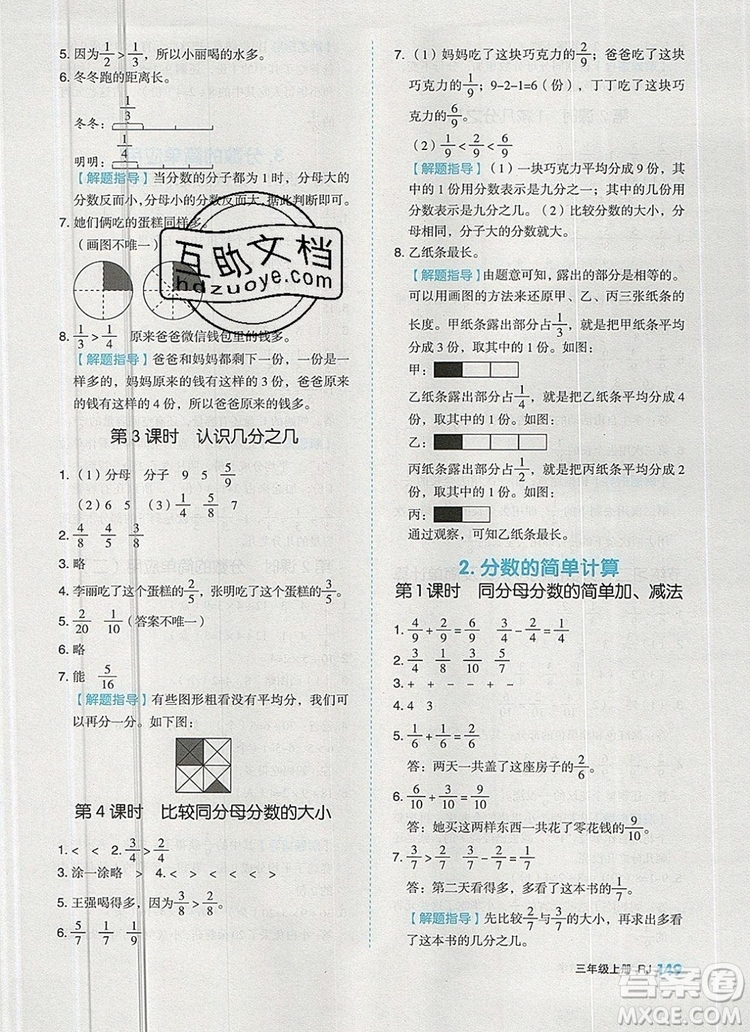 5. 因为1/2>1/3,所以小丽喝的水多。
6. 冬冬跑的距离长。
1/3
冬冬:
1/4
明明:
【解题指导】当分数的分子都为1时,分母大的分数反而小,分母小的分数反而大,据此判断即可。
7. 她们俩吃的蛋糕同样多。
(画图不唯一)
8. 1/3>1/4 原来爸爸微信钱包里的钱多。
【解题指导】爸爸和妈妈都剩下一份,一份是一
样多的,妈妈原来的钱有这样的3份,爸爸原来
的钱有这样的4份,所以爸爸原来的钱多。
第3课时 认识几分之几
1. (1)分母 分子 9 5 5/9
(2)6 7 (3)1/4 5/8 7
2. 4/8 4/5 3/4
3. 略
4. 李丽吃了这个蛋糕的2/5,张明吃了这个蛋糕的3/5。
5. 2/20 1/10(答案不唯一)
6. 略
7. 能 5/16
【解题指导】有些图形粗看没有平均分,我们可
以再分一分。如下图:
第4课时 比较同分母分数的大小
1. < < 2. 3/4>2/4
3. 涂一涂略 4. > < < < < <
5. 王强喝得多。3/8>2/8
6. 5/7 1/7 1/9
7. (1)妈妈吃了这块巧克力的2/9;爸爸吃了这块
巧克力的1/9;9-2-1=6(份),丁丁吃了这块巧
克力的6/9。
(2)1/9<2/9<6/9
【解题指导】(1)一块巧克力平均分成9份,其
中的1份用分数表示是九分之一;其中的几份用
分数表示是九分之几。(2)比较分数的大小,分
母相同,分子大的分数就大。
8. 乙纸条最长。
【解题指导】由题意可知,露出的部分是相等的。
可以用画图的方法来还原甲、乙、丙三张纸条的
长度。甲纸条露出部分占1/3,就是把甲纸条平均
分成3份,取其中的1份。如图:
甲:
乙纸条露出部分占1/4,就是把乙纸条平均分成4
份,取其中的1份。如图:
乙:
丙纸条露出部分占1/2,就是把丙纸条平均分成2
份,取其中的1份。如图:
丙:
通过观察,可知乙纸条最长。
2. 分数的简单计算
第1课时 同分母分数的简单加、减法
1. 4/9+2/9=6/9 3/4-2/4=1/4
2. 3/4 1/8 3/10 5/5
3. + + - - + -
4. 4 3
5. 1/6+1/6=2/6
答:两天一共盖了这座房子的2/6。
6. 6/10+3/10=9/10
答:她买这两样东西一共花了零花钱的9/10。
7. 3/7>2/7 3/7-2/7=1/7
答:第二天看得多,多看了这本书的1/7。
【解题指导】先比较2/7与3/7的大小,再求出多看
了这本书的几分之几。
三年级上册·RJ 149
互助文档
hdzuoye.com
答案圈
MXQE.COM